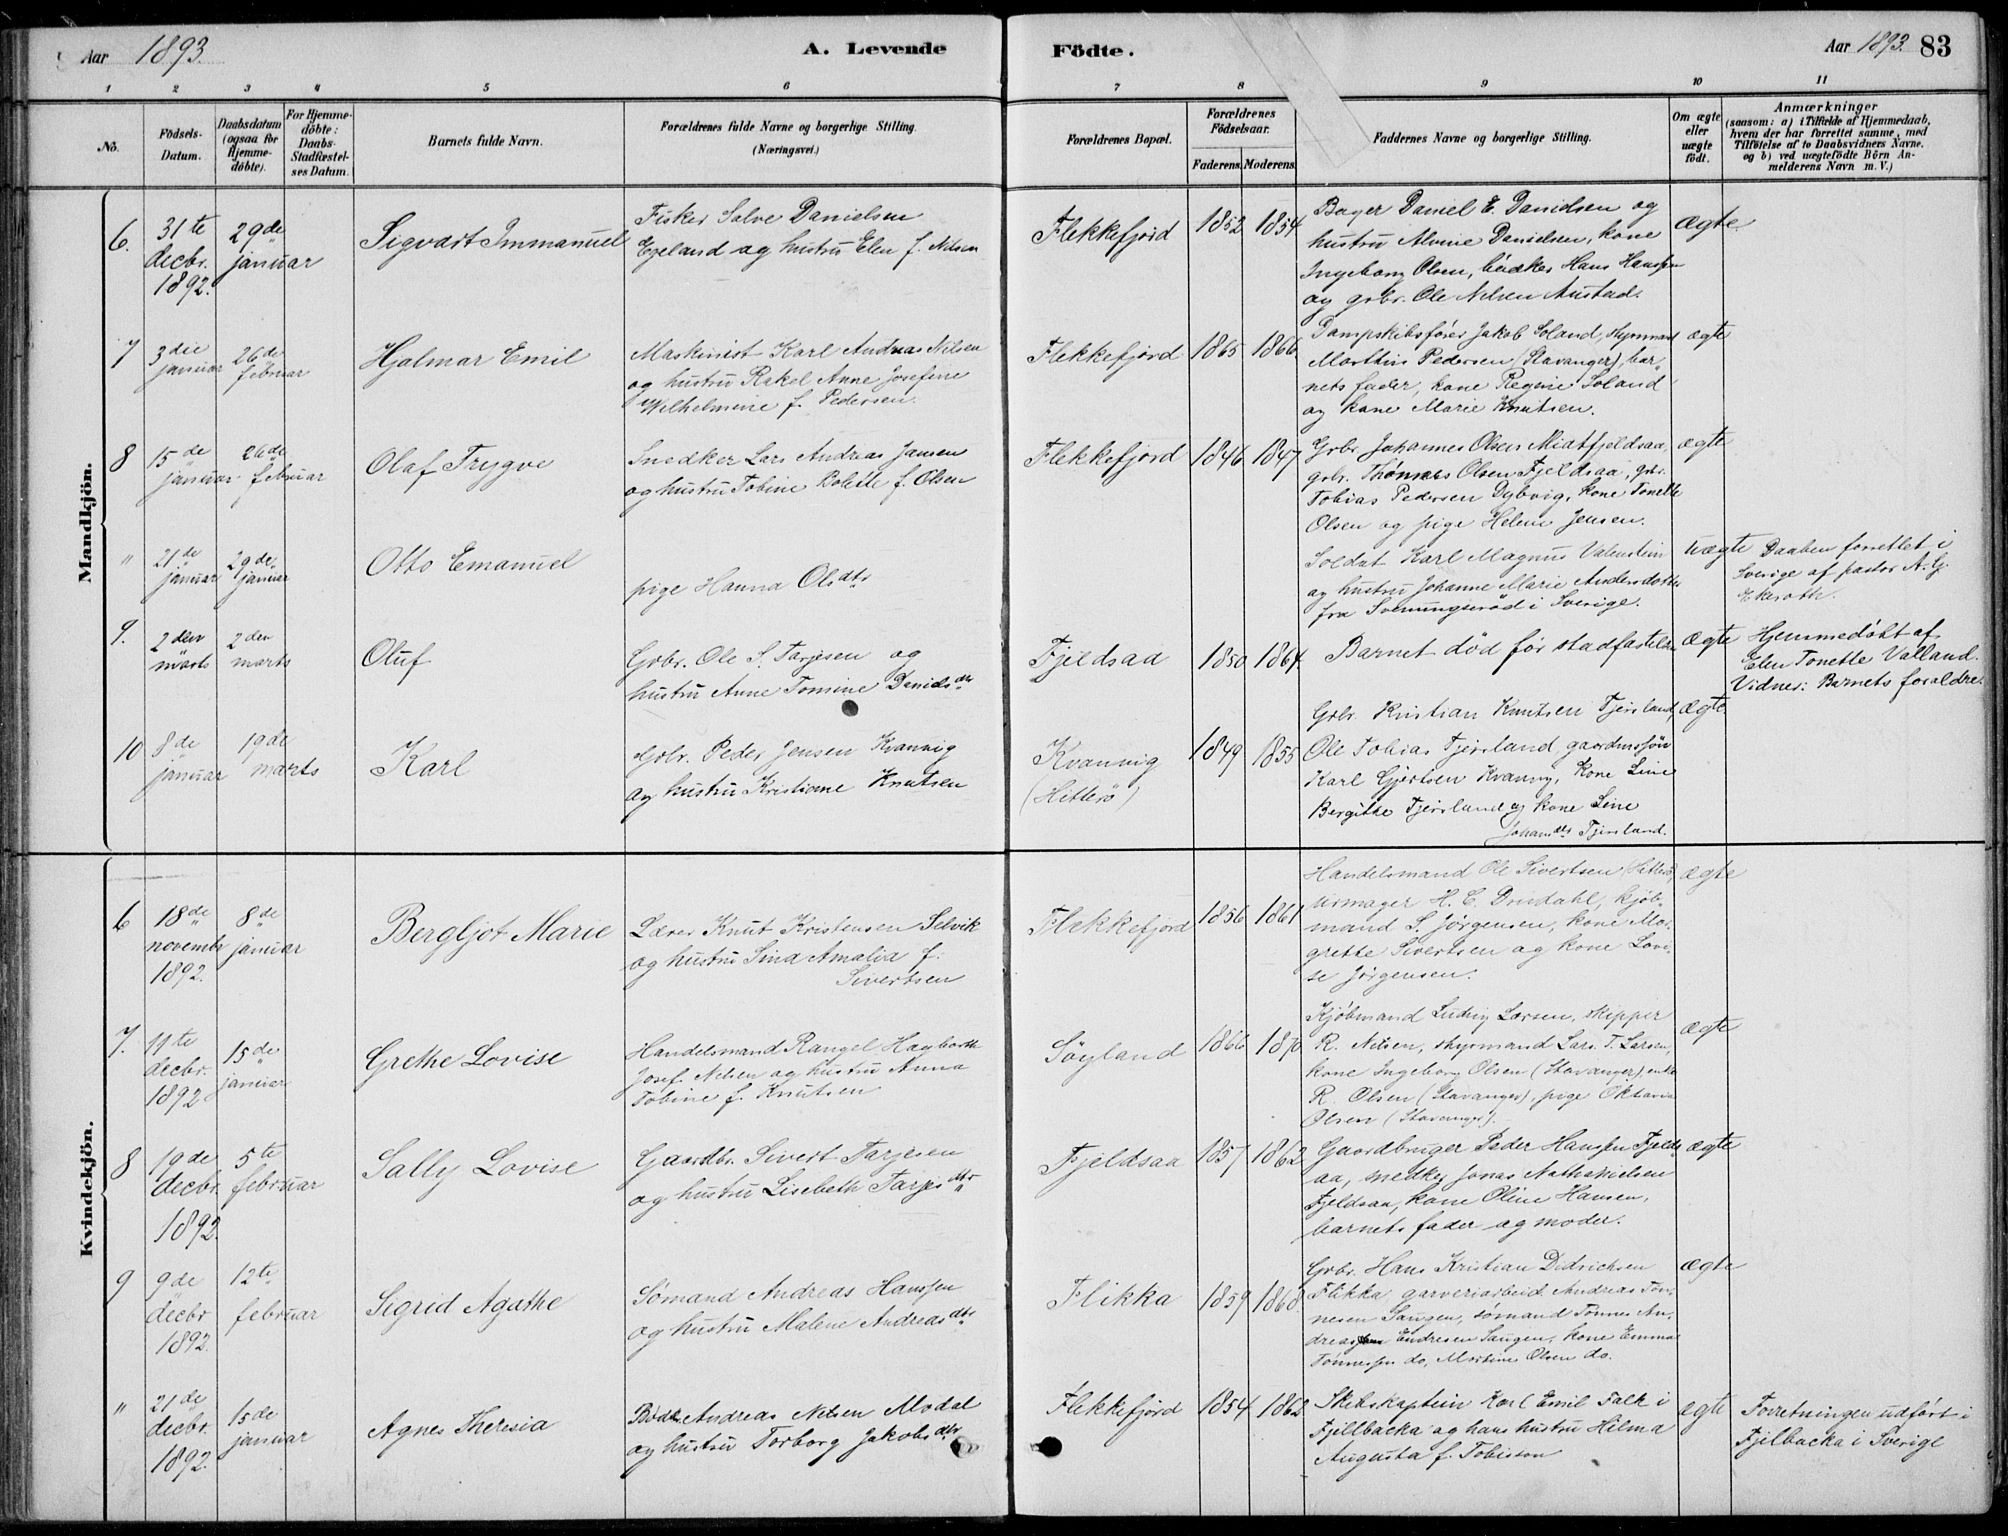 Aar 1893.
A. Levende Födte.
Aar 1893. 83
1 2 3 4 5 6 7 8 9 10 11
No.
Födsels-Datum.
Daabsdatum (ogsaa for Hjemme-döbte).
For Hjemme-döbte: Daabs-Stadfæstel-ses Datum.
Barnets fulde Navn.
Forældrenes fulde Navne og borgerlige Stilling. (Næringsvei.)
Forældrenes Bopæl.
Forældrenes Födselsaar.
Faderens. Moderens.
Faddernes Navne og borgerlige Stilling.
Om ægte eller uægte födt.
Anmærkninger (saasom: a) i Tilfælde af Hjemmedaab, hvem der har forrettet samme, med Tilföielse af to Daabsvidners Navne. og b) ved uægtefödte Börn An-melderens Navn m. V.)
Mandkjön.
6. 31te decbr. 1892. 29de januar
Sigvart Immanuel
Fisker Salve Danielsen
Egeland og hustru Elen f. Nilsen
Flekkefjord 1852 1854
Bager Daniel E. Danielsen og
hustru Alvine Danielsen, kone
Ingeborg Olsen, bödker Hans Hanssen
og grbr. Ole Nilsen Austad.
ægte
7 3die januar 26de februar
Hjalmar Emil
Maskinist Karl Andreas Nilsen
og hustru Rakel Anne Josefine
Wilhelmine f. Pedersen.
Flekkefjord 1865 1866
Dampskibsfører Jakob Soland, styrmand
Marthin Pedersen (Stavanger), bar-
nets fader, kone Regine Soland
og kone Marie Knutsen.
ægte
8 15de januar 26de februar
Olaf Trygve
Snedker Lars Andreas Jansen
og hustru Tobine Bolette f. Olsen
Flekkefjord 1846 1847
Grbr. Johannes Olsen Midtfjeldsaa,
grbr. Thomas Olsen Fjeldsaa, grbr.
Tobias Pedersen Dybvig, kone Tonette
Olsen og pige Helene Jensen.
ægte
" 21de januar 29de januar
Otto Emanuel
pige Hanna Olsdtr
Soldat Karl Magnus Valentin
og hustru Johanne Marie Andersdotter
fra i Sverige.
uægte
Daaben forrettet i
Sverige af pastor A. G.
Ekeroth.
9. 2den marts 2den marts
Oluf
Grbr. Ole S. Tarjesen og
hustru Anne Tomine Danielsdtr
Fjeldsaa 1850 1864.
Barnet död før stadfæstelsen
ægte
Hjemmedöbt af
Elen Tonette Valland.
Vidner: Barnets forældre.
10 8de januar 19de marts
Karl
Grbr. Peder Jensen Kvannig
og hustru Kristiane Knutsen
Kvannig (Hitterö) 1849 1855
Grbr. Kristian Knutsen Tjersland,
Ole Tobias Tjersland, gaardmssön
Karl Gjertsen Kvannig, kone Sine
Bergithe Tjersland og kone Sine
Johansdtr Tjersland.
ægte
Kvindekjön.
6 18de novembr 1892. 8de januar
Bergljot Marie
Lærer Knut Kristensen Selvik
og hustru Sina Amalia f.
Sivertsen
Flekkefjord 1856 1861
Handelsmand Ole Sivertsen Hitterö,
urmager H. C. Drudahl, kjöb-
mand S. Jörgensen, kone Mar-
grethe Sivertsen og kone Lovi-
se Jörgensen.
ægte
7. 11te decbr. 1892 15de januar
Grethe Lovise
Handelsmand Rangel Hagbarth
Josef Nilsen og hustru Anna
Tobine f. Knutsen
Söyland 1866 1870
Kjöbmand Ludvig Larsen, skipper
R. Nilsen, styrmand Lars T. Larsen,
kone Ingeborg Olsen (Stavanger), enke
R. Olsen (Stavanger), pige Oktavia
Olsen (Stavanger).
ægte
8 19de decbr. 1892. 5te februar
Sally Lovise
Gaardbr. Sivert Tarjesen
og hustru Lisebeth Tarjesdtr
Fjeldsaa 1857 1862
Gaardbruger Peder Hanssen Fjelds
aa, snedker Jonas Nathanielsen
Fjeldsaa, kone Oline Hansen,
barnets fader og moder.
ægte
9 9de decbr 1892. 12te februar
Sigrid Agathe
Sømand Andreas Hanssen
og hustru Malene Andreasdtr
Flikka 1859 1868
Grbr. Hans Kristian Didrichsen
Flikka, garveriarbeid. Andreas Tön-
nesen Saugen, sømand Tönnes An-
dreas Endresen Saugen, kone Emma
Tönnessen do, Martine Olsen do.
ægte
" 21de decbr. 1892. 15de januar
Agnes Theresia
Bödk. Andreas Nilsen Modal
og hustru Torborg Jakobsdtr
Flekkefjord 1854 1862
Skibskaptein Karl Emil Falk i
Fjellbacka og hans hustru Hilma
Augusta f. Tobisson
ægte
Forretningen udført i
Fjelbacka i Sverige